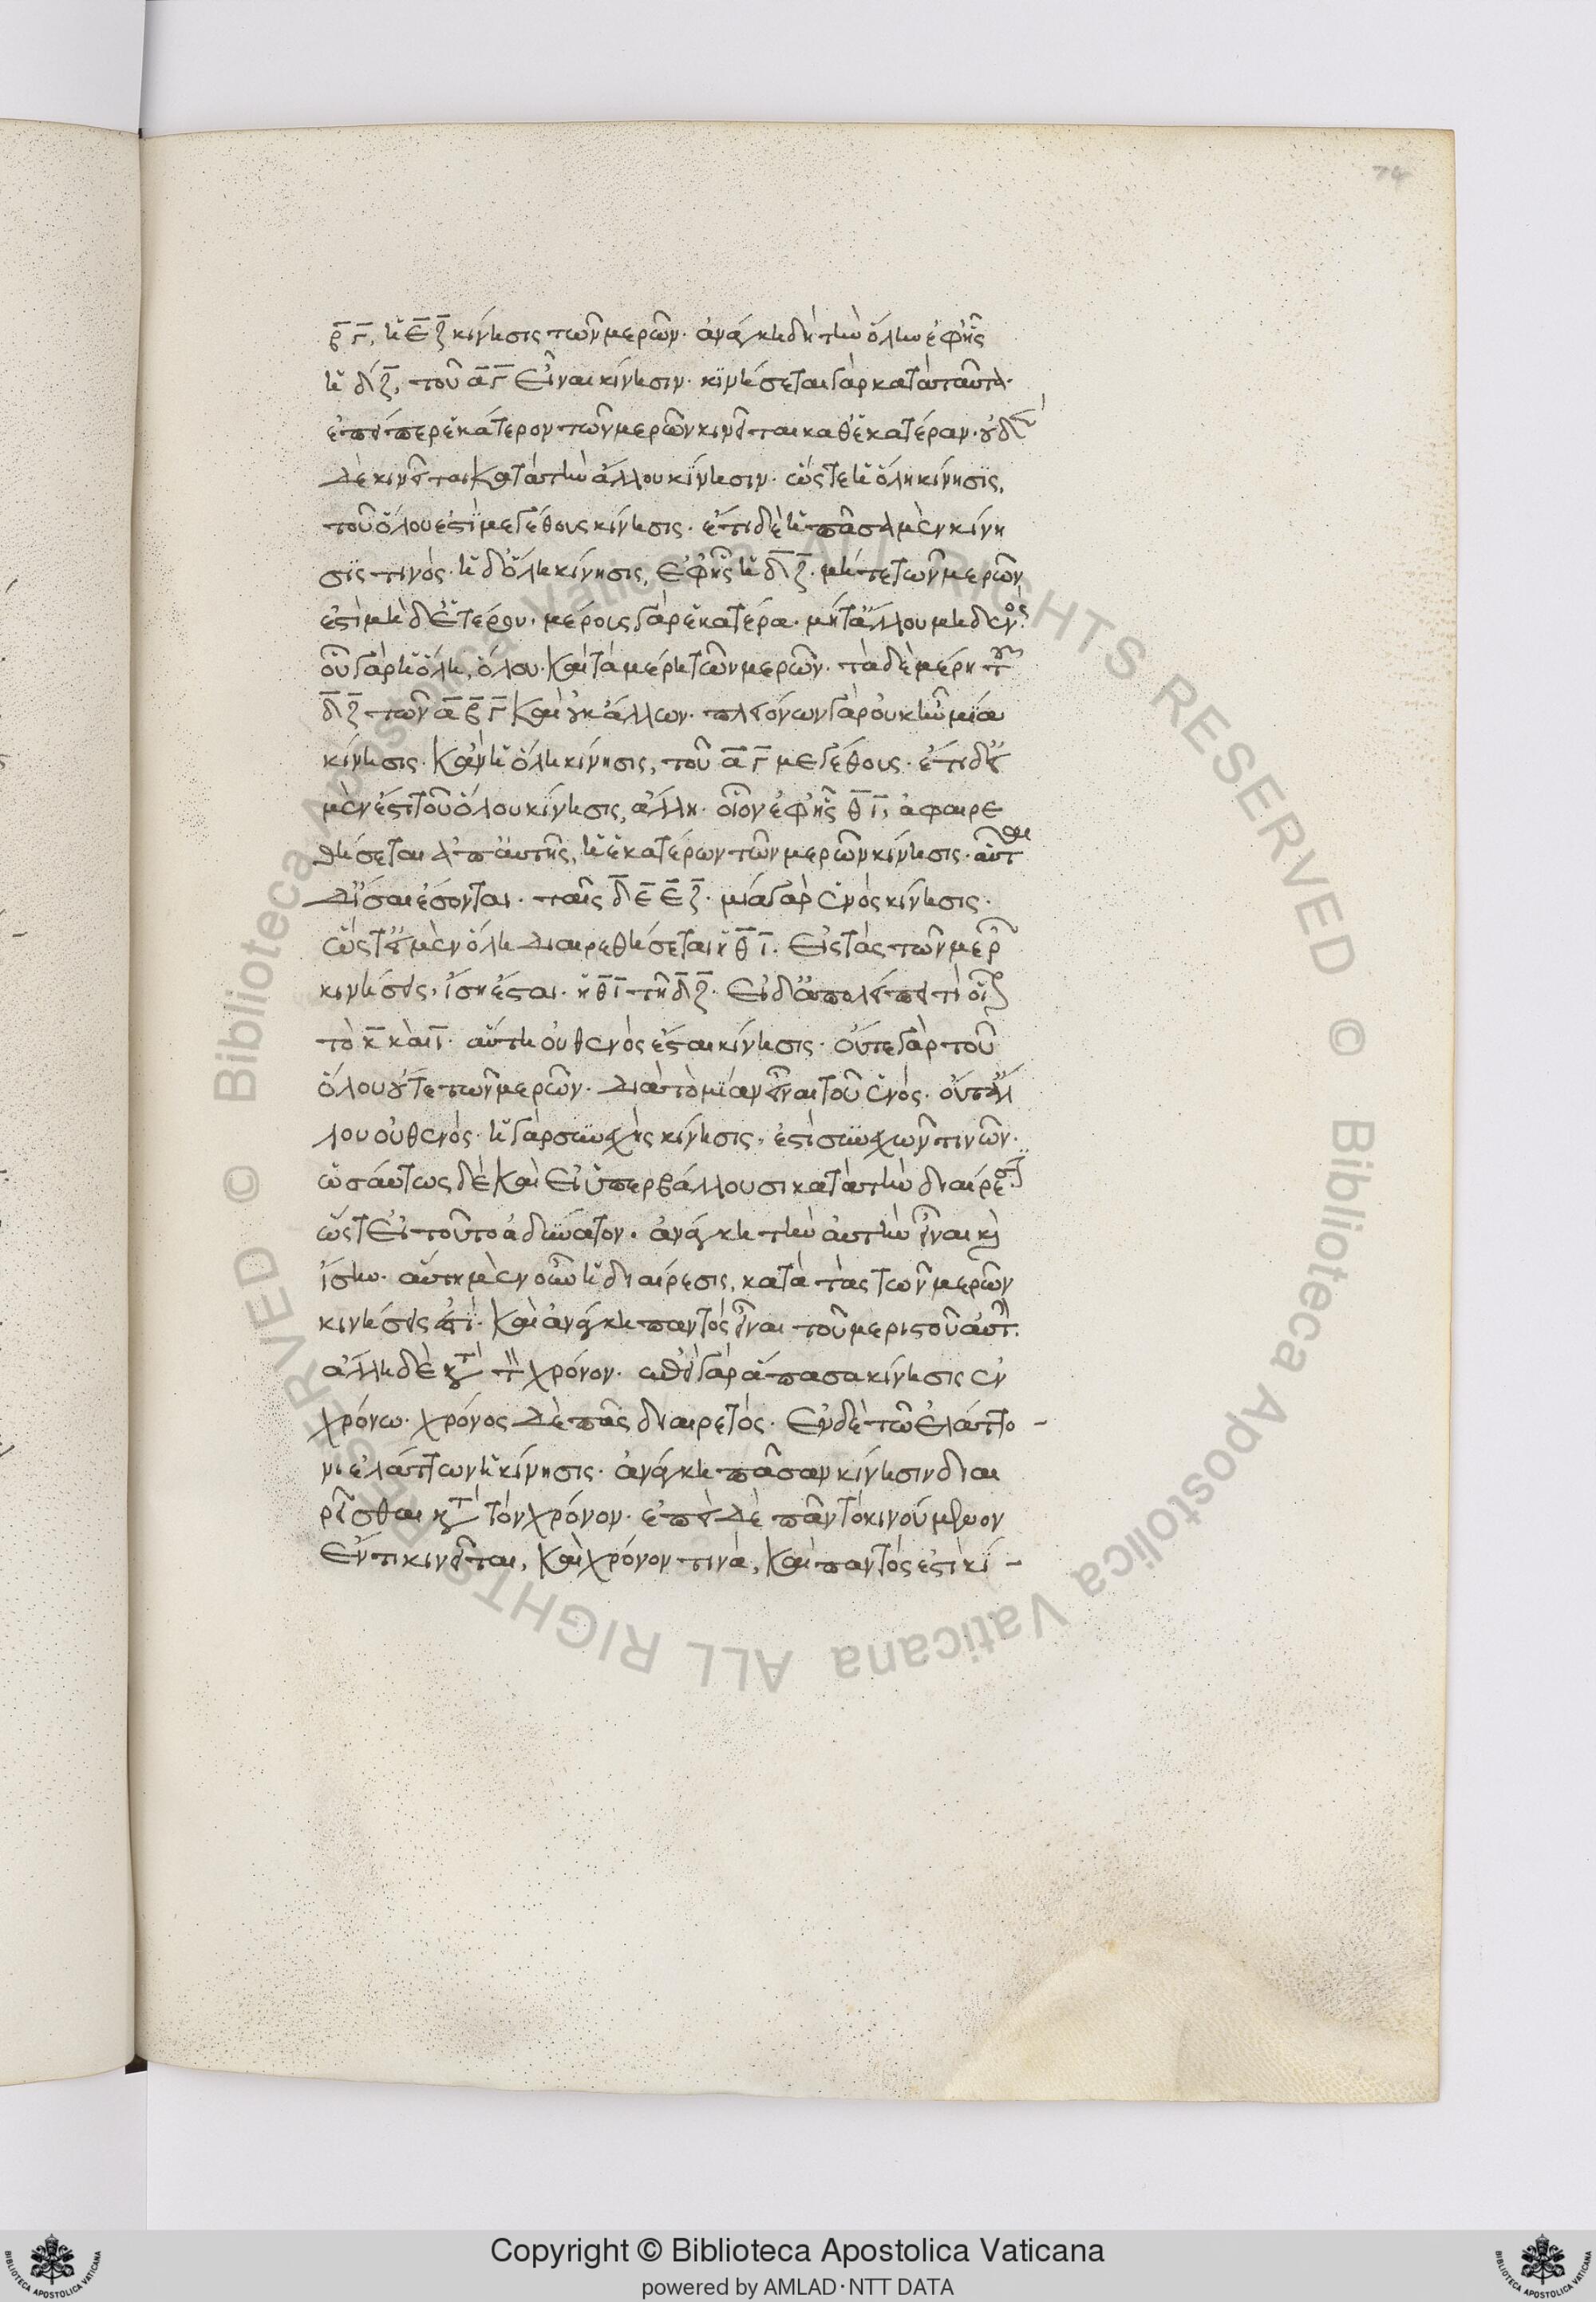 74
β̅ γ̅, ἡ ε̅ ζ̅ κίνησις τῶν μερῶν· ἀνάγκη δὴ τὴν ὅλην ἐφ' ἧς
ἡ δ̅ζ̅, τοῦ α̅ γ̅ εἶναι κίνησιν· κϊνήσεται γὰρ κατὰ ταῦτα·
ἐπείπερ ἑκάτερον τῶν μερῶν κινεῖται καθ' ἑκατέραν· οὐδὲν
δὲ κινεῖται κατὰ τὴν ἄλλου κίνησιν· ὥστε ἡ ὅλη κίνησϊς,
τοῦ ὅλου ἐστὶ μεγέθους κίνησις· ἔτι δὲ ἡ πᾶσα μὲν κίνη
σϊς τινός· ἡ δ' ὅλη κίνησις, ἐφ' ἧς ἡ δ̅ ζ̅· μήτε τῶν μερῶν
ἐστὶ μηδ' ἑτέρου· μέρους γὰρ ἑκατέρα· μήτ' ἄλλου μηδενός·
οὗ γὰρ ἡ ὅλη, ὅλου· καὶ τὰ μέρη τῶν μερῶν· τὰ δὲ μέρη τῶν
δ̅ζ̅ τῶν α̅ β̅ γ̅ καὶ οὐκ ἄλλων· πλειόνων γὰρ οὐκ ἦν μία
κίνησις· κἂν ἡ ὅλη κίνησις, τοῦ α̅ γ̅ μεγέθους· ἔτι δ' εἰ
μὲν ἔστι τοῦ ὅλου κίνησις, ἄλλη· οἷον ἐφ' ἧς θ̅ ι̅, ἀφαιρε
θήσεται ἀπ' αὐτῆς, ἡ ἑκατέρων τῶν μερῶν κίνησις· αὗται
δ' ἴσαι ἔσονται· ταῖς δ̅ ε̅ ε̅ ζ̅· μία γὰρ ἑνὸς κίνησις·
ὥστ' εἰ μὲν ὅλη διαιρεθήσεται ἡ θ̅ ι̅· εἰς τὰς τῶν μερῶν
κινήσεις, ἴση ἔσται· ἡ θ̅ι̅ τῆ δ̅ζ̅· εἰ δ' ἀπολείπει τὶ οἷον
τὸ κ̅ καὶ ι̅· αὕτη οὐθενὸς ἔσται κίνησις· οὔτε γὰρ τοῦ
ὅλου οὔτε τῶν μερῶν· διὰ τὸ μίαν εἶναι τοῦ ἑνός· οὔτ' ἄλ
λου οὐθενός· ἡ γὰρ συνεχὴς κίνησις, ἐστὶ συνεχῶν τινῶν·
ὡσαύτως δὲ καὶ εἰ ὑπερβάλλουσι κατὰ τὴν διαίρεσιν·
ὥστ' εἰ τοῦτο ἀδύνατον· ἀνάγκη τὴν αὐτὴν εἶναι καὶ
ἴσην· αὕτη μὲν οὖν ἡ διαίρεσις, κατὰ τὰς τῶν μερῶν
κινήσεις ἐστί· καὶ ἀνάγκη παντὸς εἶναι τοῦ μεριστοῦ αὐτήν·
ἄλλη δὲ κατὰ τὸν χρόνον· ἐπεὶ γὰρ ἅπασα κίνησις ἐν
χρόνω· χρόνος δὲ πᾶς διαιρετός· ἐν δὲ τῶ ἐλάττο-
νι ἐλάττων ἡ κίνησις· ἀνάγκη πᾶσαν κίνησιν διαι
ρεῖσθαι κατὰ τὸν χρόνον· ἐπεὶ δὲ πᾶν τὸ κινούμενον
ἔν τινι κινεῖται, καὶ χρόνον τινὰ, καὶ παντὸς ἐστὶ κί-
Copyright © Biblioteca Apostolica Vaticana
powered by AMLAD·NTT DATA
Biblioteca Apostolica Vaticana ALL RIGHTS RESERVED ©
Biblioteca Apostolica Vaticana ALL RIGHTS RESERVED ©